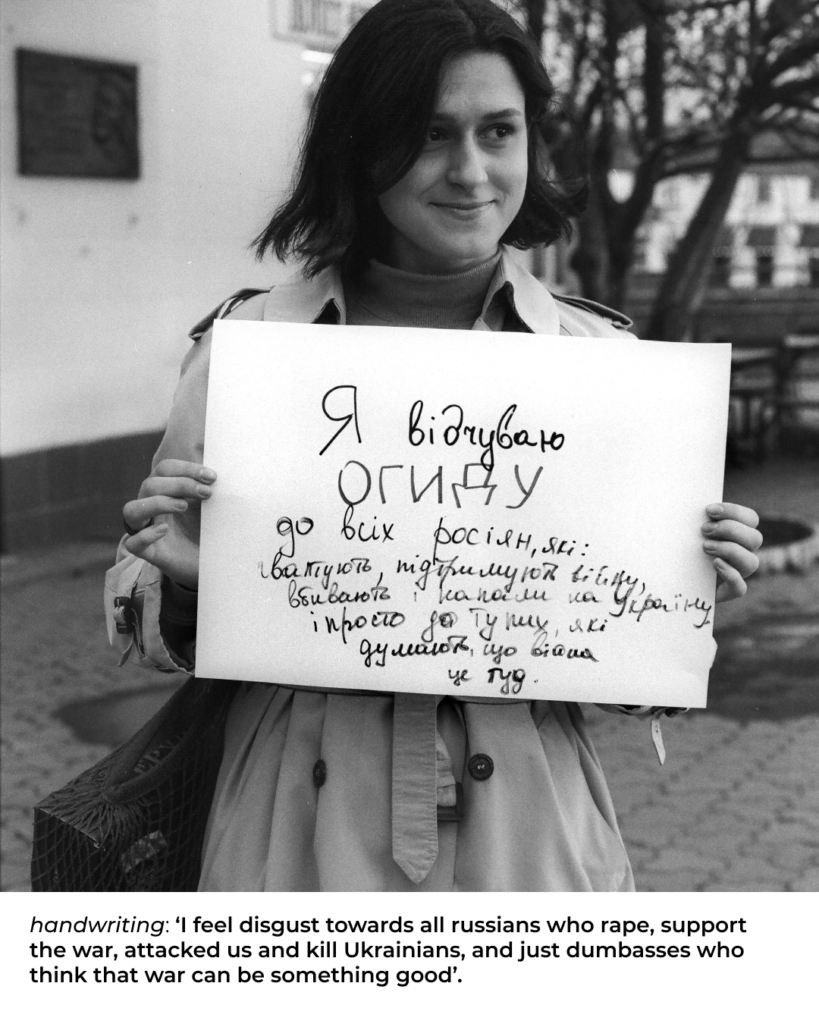 Я відчуваю
ОГИДУ
до всіх росіян, які:
ґвалтують, підтримують війну,
вбивають і напали на Україну
і просто до тупих, які
думають, що війна
це гуд.
handwriting: ‘I feel disgust towards all russians who rape, support
the war, attacked us and kill Ukrainians, and just dumbasses who
think that war can be something good’.